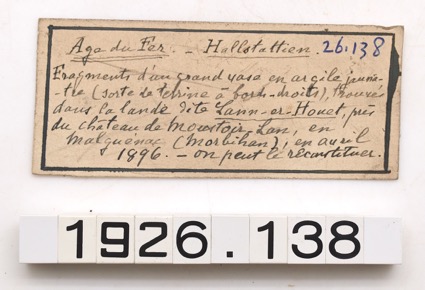 Age du Fer. - Hallstattien. 26.138
Fragments d'un grand vase en argile jaunâ-
tre (sorte de terrine à bords droits), trouvés
dans la lande dite Lann-er-Houet, près
du château de Moustoir-Lan, en
Malguénac (Morbihan), en avril
1896. - on peut le reconstituer.
1926.138